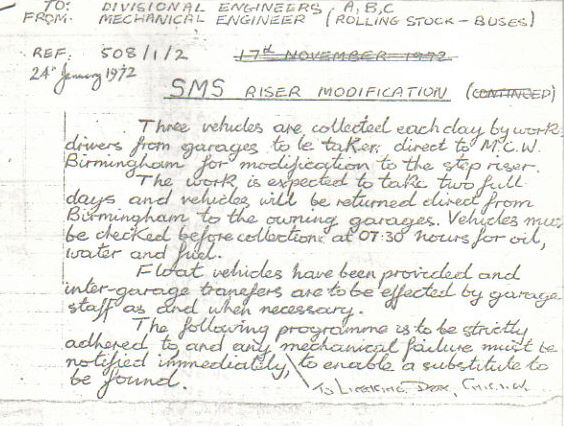 TO: DIVISIONAL ENGINEERS, A, B, C
FROM: MECHANICAL ENGINEER (ROLLING STOCK - BUSES)
REF. 508/1/2 17th NOVEMBER 1972
24th January 1972
SMS RISER MODIFICATION (CONTINUED)
Three vehicles are collected each day by work
drivers from garages to be taken direct to M.C.W.
Birmingham for modification to the step riser.
The work is expected to take two full
days and vehicles will be returned direct from
Birmingham to the owning garages. Vehicles mus
be checked before collection at 07:30 hours for oil,
water and fuel.
Float vehicles have been provided and
inter-garage transfers are to be effected by garage
staff as and when necessary.
The following programme is to be strictly
adhered to and any mechanical failure must be
notified immediately, to enable a substitute to
be found. To Licensing Desk,